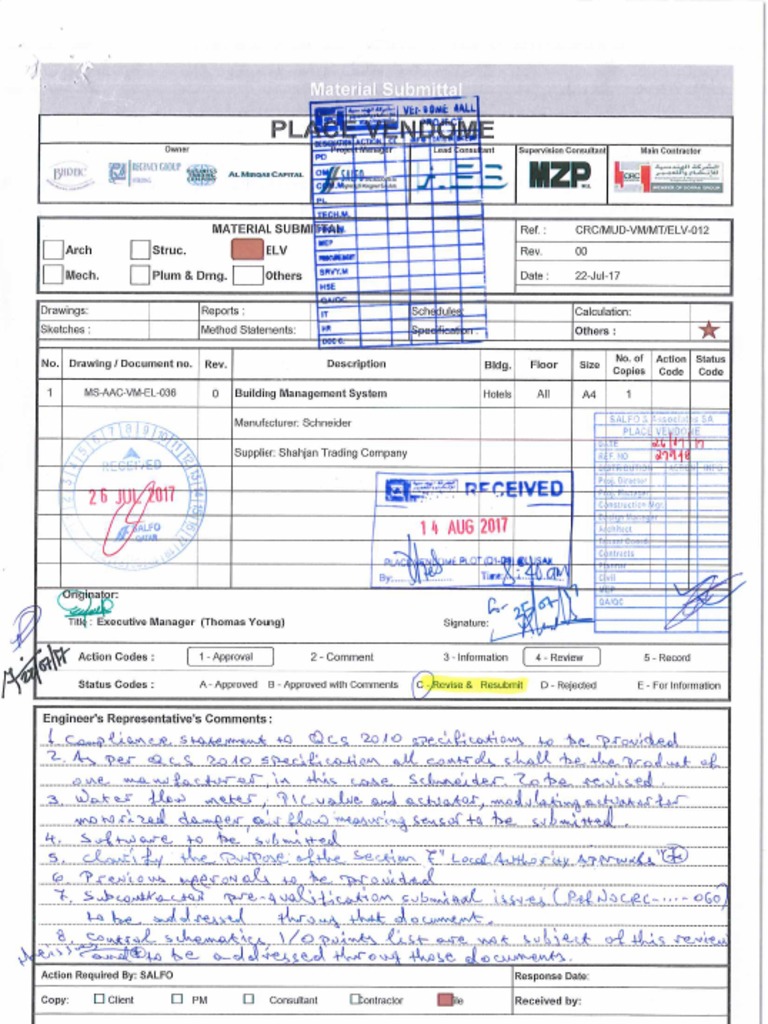 Material Submittal
PLACE VENDOME
Owner
Project Manager
Lead Consultant
Supervision Consultant
Main Contractor
REGENCY GROUP
AL MIRQAB CAPITAL
SALFO
MZP
CRC
VENDOME MALL
PROJECT
PD
PL
TECH.M.
MEP
SRVY.M
HSE
QA/QC
IT
HR
DOC C.
MATERIAL SUBMITTAL
Arch
Struc.
ELV
Mech.
Plum & Drng.
Others
Ref. : CRC/MUD-VM/MT/ELV-012
Rev. 00
Date : 22-Jul-17
Drawings:
Reports :
Schedules
Calculation:
Sketches :
Method Statements:
Specification :
Others :
No. Drawing / Document no. Rev. Description Bldg. Floor Size No. of Copies Action Code Status Code
1 MS-AAC-VM-EL-036 0 Building Management System Hotels All A4 1
Manufacturer: Schneider
Supplier: Shahjan Trading Company
RECEIVED
26 JUL 2017
SALFO
QATAR
RECEIVED
14 AUG 2017
By:
Time: 8:40 am
SALFO & Associates SA
PLACE VENDOME
DATE 26/07/17
REF NO
DISTRIBUTION ACTION INFO
Proj. Director
Proj. Manager
Construction Mgr.
Design Manager
Architect
Contracts
Planner
Civil
MEP
QA/QC
Originator:
Title : Executive Manager (Thomas Young)
Signature:
25/07/17
Action Codes : 1 - Approval 2 - Comment 3 - Information 4 - Review 5 - Record
Status Codes : A - Approved B - Approved with Comments C - Revise & Resubmit D - Rejected E - For Information
Engineer's Representative's Comments :
1. Compliance statement to QCS 2010 specifications to be provided
2. As per QCS 2010 specification all controls shall be the product of
one manufacturer, in this case Schneider. To be revised.
3. Water flow meter, PIC valve and actuator, modulating actuator for
motorized damper, air flow measuring sensor to be submitted.
4. Software to be submitted
5. Clarify the purpose of the Section 7 "Local Authority Approvals"
6. Previous approvals to be provided
7. Subcontractor pre-qualification submittal issues (Ref No CRC-....-060)
to be addressed through that document.
8. control schematics, I/O points list are not subject of this review
and to be addressed through those documents.
Action Required By: SALFO
Response Date:
Copy: Client PM Consultant Contractor File
Received by: